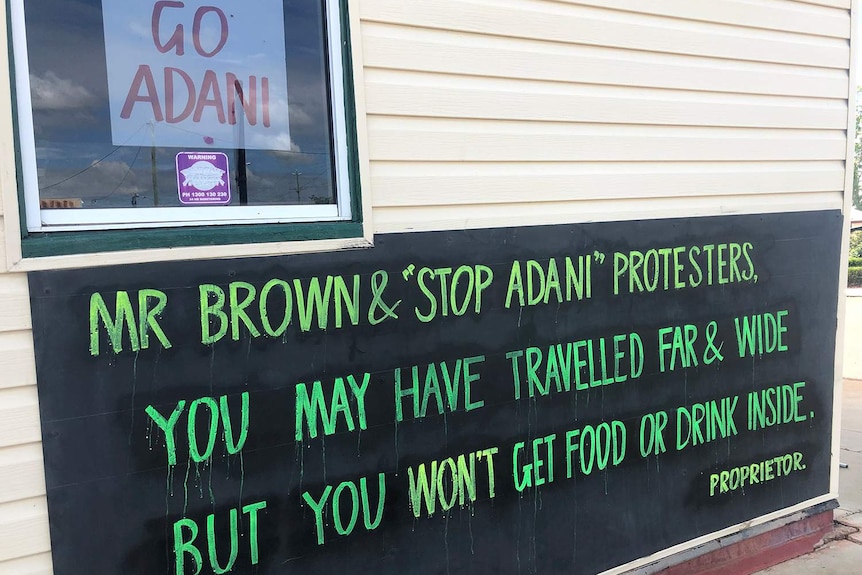 GO
ADANI
WARNING
PH 1300 130 230
MR BROWN & "STOP ADANI" PROTESTERS,
YOU MAY HAVE TRAVELLED FAR & WIDE
BUT YOU WON'T GET FOOD OR DRINK INSIDE.
PROPRIETOR.